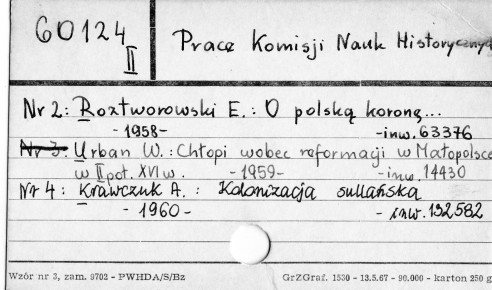 60124
II
Prace Komisji Nauk Historycznych
Nr 2: Roztworowski E.: O polską koronę...
- 1958 - - inw. 63376
Nr 3: Urban W.: Chłopi wobec reformacji w Małopolsce
w II poł. XVI w. - 1959 - - inw. 14430
Nr 4: Krawczuk A.: Kolonizacja sullańska
- 1960 - - inw. 132582
Wzór nr 3, zam. 9702 - PWHDA/S/Bz GrZGraf. 1530 - 13.5.67 - 90.000 - karton 250 g